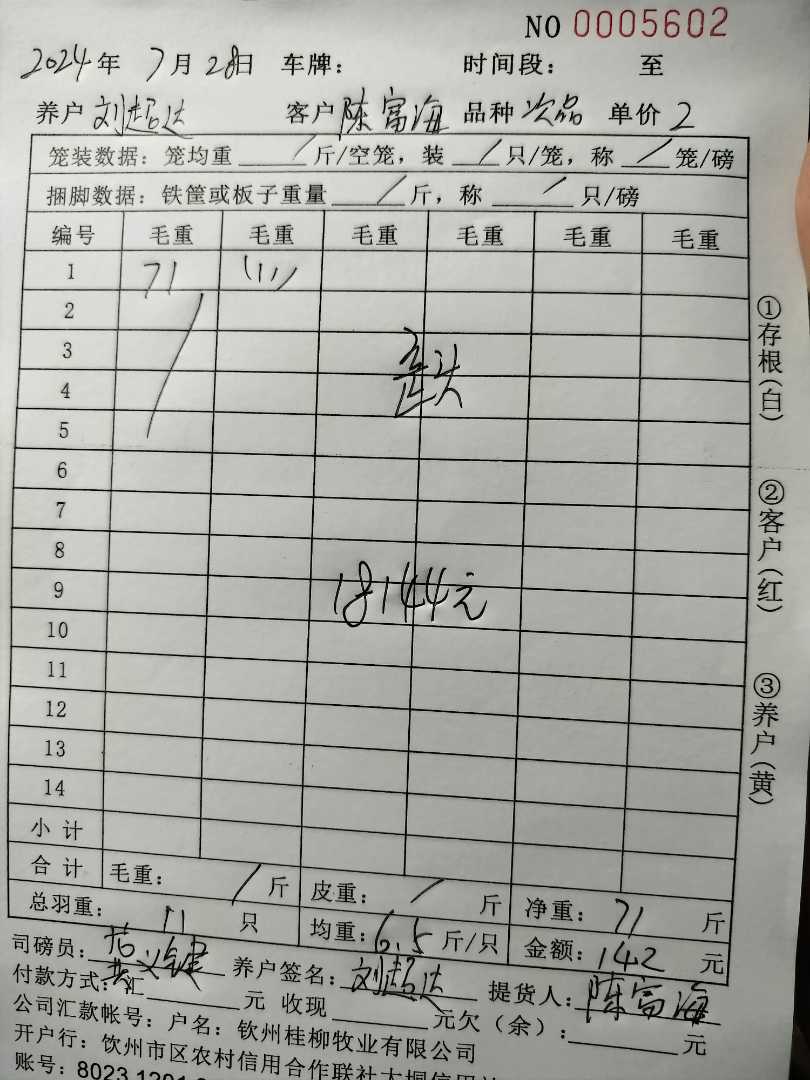 NO 0005602
2024年 7月 28日 车牌： 时间段： 至
养户 刘超达 客户 陈富海 品种 次品 单价 2
笼装数据：笼均重 / 斤/空笼，装 / 只/笼，称 / 笼/磅
捆脚数据：铁筐或板子重量 / 斤，称 / 只/磅
编号 毛重 毛重 毛重 毛重 毛重 毛重
1 71 (11)
2
3
歪头
4
5
6
7
8
9 18144元
10
11
12
13
14
小计
合计 毛重： / 斤 皮重： / 斤 净重： 71 斤
总羽重： 11 只 均重： 6.5 斤/只 金额： 142 元
司磅员： 养户签名： 刘超达 提货人： 陈富海
付款方式：汇 元 收现 元欠（余）： 元
公司汇款帐号：户名：钦州桂柳牧业有限公司
开户行：钦州市区农村信用合作联社大垌信用社
账号：8023 1201
①存根（白）
②客户（红）
③养户（黄）